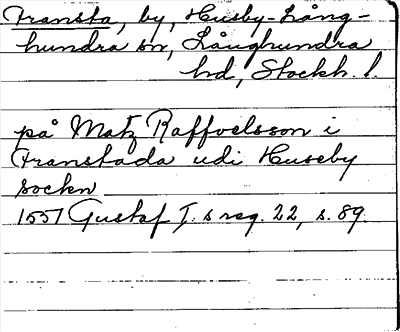 Fransta, by, Husby-Lång-
hundra sn, Långhundra
hd, Stockh. l.
på Matz Raffvelsson i
Franstada udi Huseby
sockn
1551 Gustaf I. s reg. 22, s. 89.